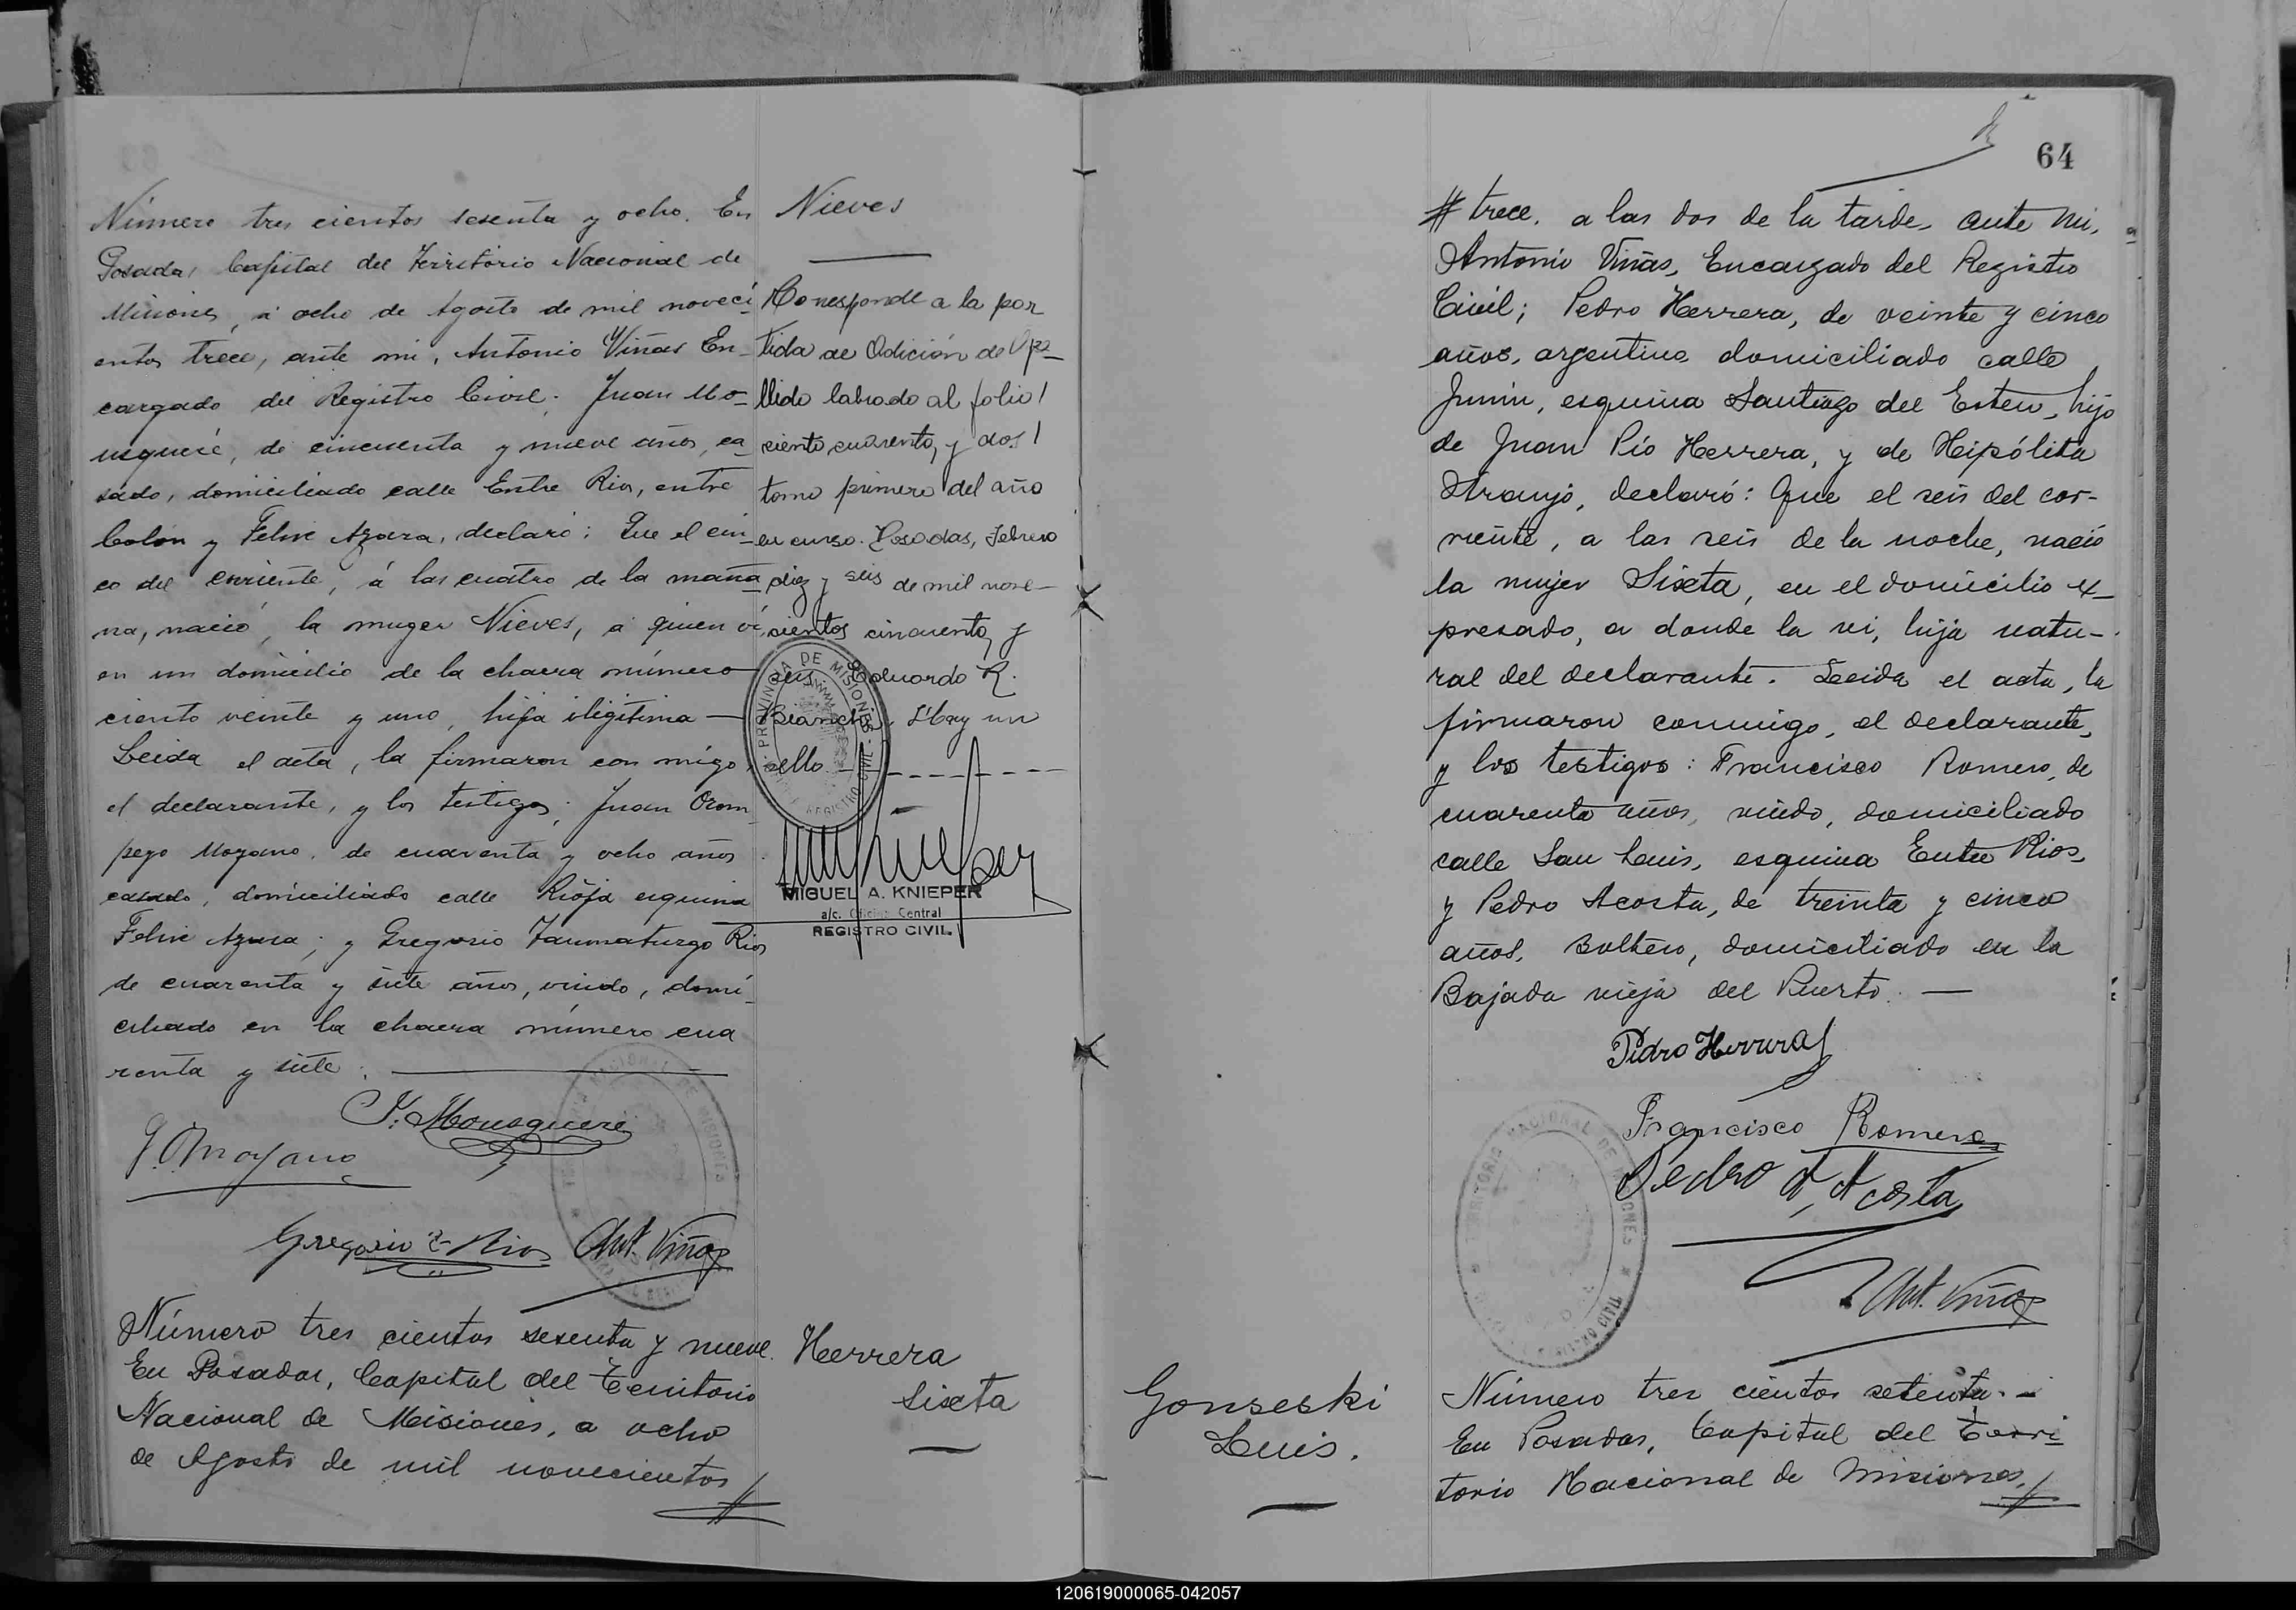 Número tres cientos sesenta y ocho. En
Posadas Capital del Territorio Nacional de
Misiones, á ocho de Agosto de mil noveci
entos trece, ante mi, Antonio Viñas En-
cargado del Registro Civil; Juan Mo-
usqueré, de cincuenta y nueve años, ca
sado, domiciliado calle Entre Rios, entre
Colón y Felix Azara, declaró: Que el cin-
co del corriente, á las cuatro de la maña
na, nació, la muger Nieves, á quien ví
en un domicilio de la chacra número
ciento veinte y uno, hija ilegítima —
Leida el acta, la firmaron con migo,
el declarante, y los testigos; Juan Orom
pego Moyano, de cuarenta y ocho años
casado, domiciliado calle Rioja esquina
Felix Azara; y Gregorio Taumaturgo Rios
de cuarenta y siete años, viudo, domi-
ciliado en la chacra número cua
renta y siete. —
J. Mousqueré
J. O. Moyano
Gregorio T. Rios
Ant. Viñas
Nieves
Corresponde a la par
tida de Adición de Ape-
llido labrado al folio
ciento cuarenta y dos
tomo primero del año
en curso. Posadas, Febrero
diez y seis de mil nove-
cientos cincuenta y
seis. Eduardo R.
Bianchi. Hay un
sello
PROVINCIA DE MISIONES
REGISTRO CIVIL
MIGUEL A. KNIEPER
a/c. Oficina Central
REGISTRO CIVIL
Número tres cientos sesenta y nueve.
En Posadas, Capital del Territorio
Nacional de Misiones, a ocho
de Agosto de mil novecientos
Herrera
Sixta
64
# trece, a las dos de la tarde, ante mi,
Antonio Viñas, Encargado del Registro
Civil; Pedro Herrera, de veinte y cinco
años, argentino domiciliado calle
Junin, esquina Santiago del Estero, hijo
de Juan Pío Herrera, y de Hipólita
Araujo, declaró: Que el seis del cor-
riente, a las seis de la noche, nació
la mujer Sixta, en el domicilio ex-
presado, a donde la vi, hija natu-
ral del declarante. Leida el acta, la
firmaron conmigo, el declarante,
y los testigos: Francisco Romero, de
cuarenta años, viudo, domiciliado
calle San Luis, esquina Entre Rios,
y Pedro Acosta, de treinta y cinco
años, soltero, domiciliado en la
Bajada vieja del Puerto. —
Pedro Herrera
Francisco Romero
Pedro A. Acosta
Ant. Viñas
TERRITORIO NACIONAL DE MISIONES
REGISTRO CIVIL
Gonseski
Luis.
Número tres cientos setenta. -
En Posadas, Capital del Terri
torio Nacional de Misiones,
120619000065-042057